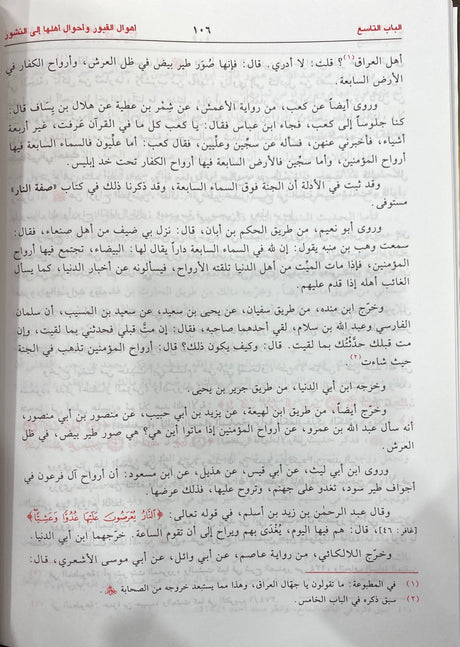 الباب التاسع ١٠٦ أهوال القبور وأحوال أهلها إلى النشور
أهل العراق(١)؟ قلت: لا أدري. قال: فإنها صُوَر طير بيض في ظل العرش، وأرواح الكفار في
الأرض السابعة.
وروى أيضاً عن كعب، من رواية الأعمش، عن شِمْر بن عطية عن هلال بن يِساف قال:
كنا جلوساً إلى كعب، فجاء ابن عباس فقال: يا كعب كل ما في القرآن عَرفت، غير أربعة
أشياء، فأخبرني عنهن، فسأله عن سجِّين وعلِّيين، فقال كعب: أما علِّيون فالسماء السابعة فيها
أرواح المؤمنين، وأما سجِّين فالأرض السابعة فيها أرواح الكفار تحت خد إبليس.
وقد ثبت في الأدلة أن الجنة فوق السماء السابعة، وقد ذكرنا ذلك في كتاب «صفة النار»
مستوفى.
وروى أبو نعيم، من طريق الحكم بن أبان، قال: نزل بي ضيف من أهل صنعاء، فقال:
سمعت وهب بن منبه يقول: إن لله في السماء السابعة داراً يقال لها: البيضاء، تجتمع فيها أرواح
المؤمنين، فإذا مات الميِّت من أهل الدنيا تلقته الأرواح، فيسألونه عن أخبار الدنيا، كما يسأل
الغائب أهله إذا قدم عليهم.
وخرّج ابن منده، من طريق سفيان، عن يحيى بن سعيد، عن سعيد بن المسيب، أن سلمان
الفارسي وعبد الله بن سلام، لقي أحدهما صاحبه، فقال: إن متُّ قبلي فحدثني بما لقيت، وإن
مت قبلك حدَّثْتُك بما لقيت. قال: وكيف يكون ذلك؟ قال: أرواح المؤمنين تذهب في الجنة
حيث شاءت(٢).
وخرجه ابن أبي الدنيا، من طريق جرير بن يحيى.
وخرج أيضاً، من طريق ابن لهيعة، عن يزيد بن أبي حبيب، عن منصور بن أبي منصور،
أنه سأل عبد الله بن عمرو، عن أرواح المؤمنين إذا ماتوا أين هي؟ هي صور طير بيض، في ظل
العرش.
وروى ابن أبي ليث، عن أبي قيس، عن هذيل، عن ابن مسعود: أن أرواح آل فرعون في
أجواف طير سود، تغدو على جهنم، وتروح عليها، فذلك عرضها.
وقال عبد الرحمٰن بن زيد بن أسلم، في قوله تعالى: ﴿النَّارُ يُعْرَضُونَ عَلَيْهَا غُدُوًّا وَعَشِيًّا﴾
[غافر: ٤٦]، قال: هم فيها اليوم، يُغْدَى بهم ويراح إلى أن تقوم الساعة. خرّجهما ابن أبي الدنيا.
وخرَّج اللالكائي، من رواية عاصم، عن أبي وائل، عن أبي موسى الأشعري، قال:
(١) في المطبوعة: ما تقولون يا جهّال العراق، وهذا مما يستبعد خروجه من الصحابة ﷺ.
(٢) سبق ذكره في الباب الخامس.